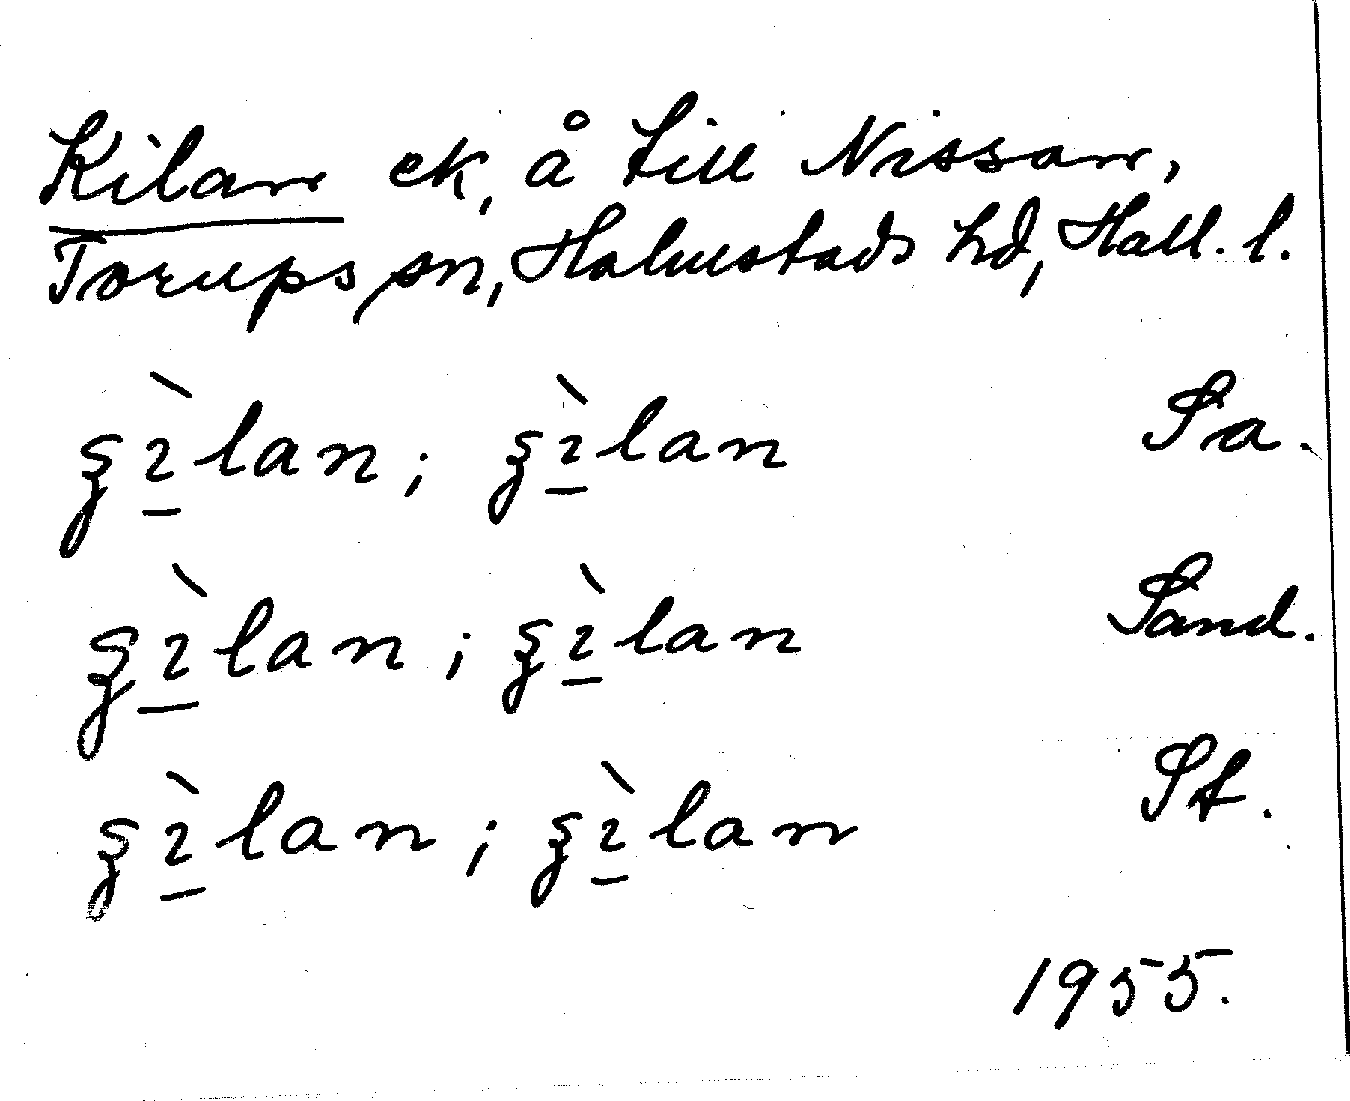 Kilan ek, å till Nissan,
Torups sn, Halmstads hd, Hall. l.
ʂì̱lan; ʂì̱lan Sa.
ʂì̱lan; ʂì̱lan Sand.
ʂì̱lan; ʂì̱lan St.
1955.